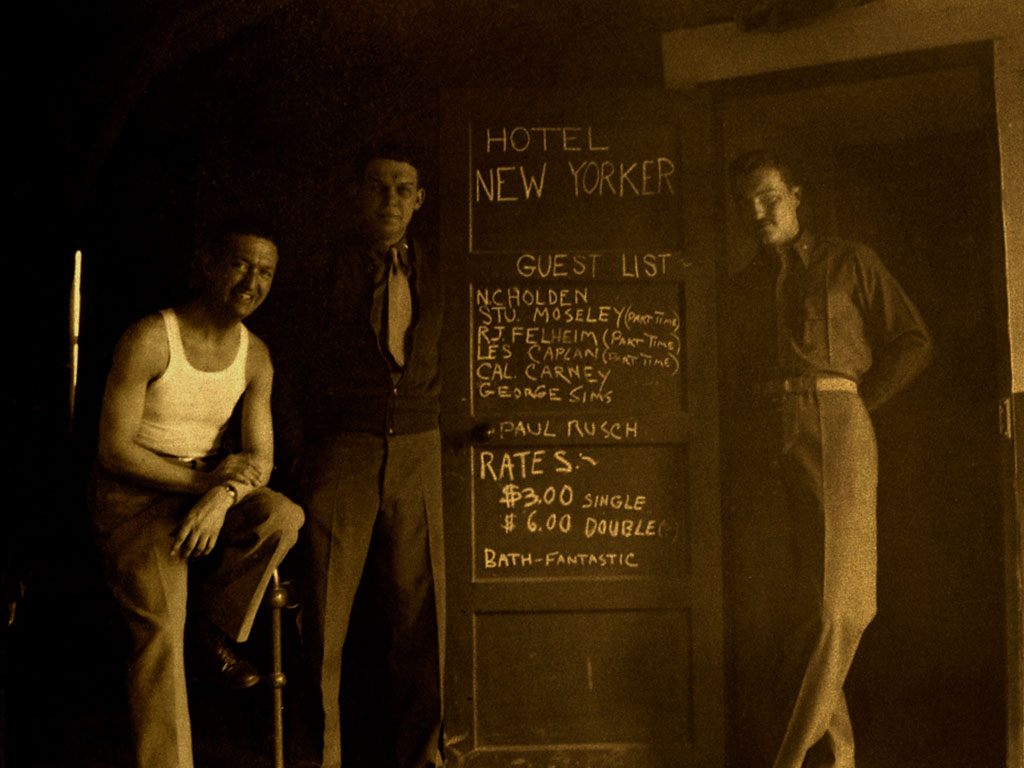 HOTEL
NEW YORKER
GUEST LIST
N.C. HOLDEN
STU. MOSELEY (PART TIME)
R.J. FELHEIM (PART TIME)
LES CAPLAN (PART TIME)
CAL. CARNEY
GEORGE SIMS
PAUL RUSCH
RATES:-
$3.00 SINGLE
$6.00 DOUBLE( )
BATH-FANTASTIC